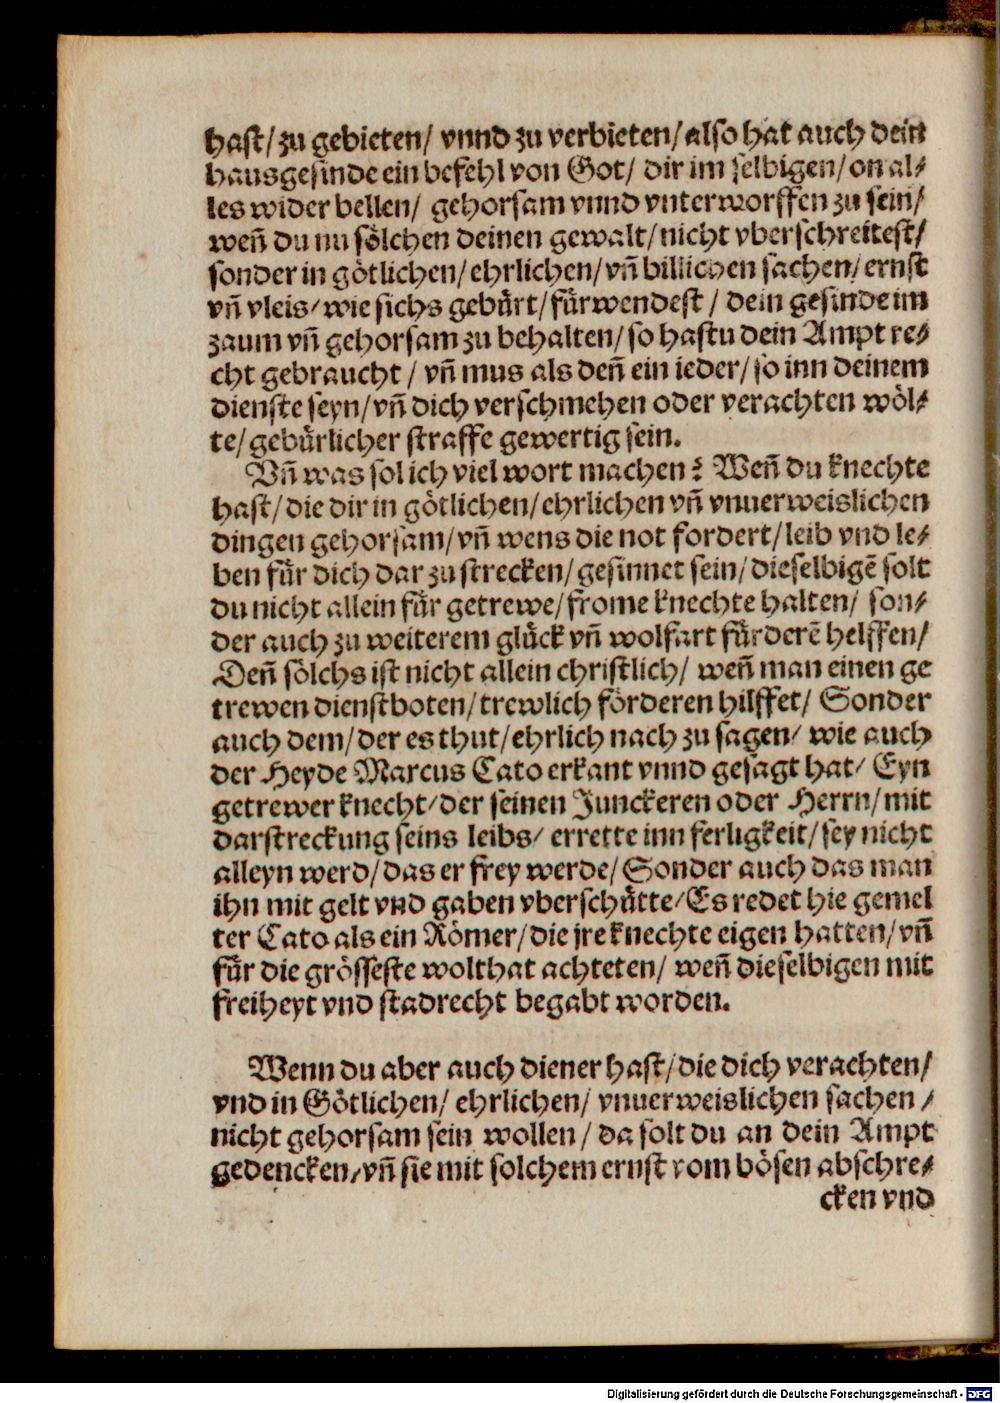 hast/ zu gebieten/ vnnd zu verbieten/ also hat auch dein
hausgesinde ein befehl von Got/ dir im selbigen/ on al⸗
les wider bellen/ gehorsam vnnd vnterworffen zu sein/
weñ du nu soͤlchen deinen gewalt/ nicht vberschreitest/
sonder in goͤtlichen/ ehrlichen/ vñ billichen sachen/ ernst
vñ vleis/ wie sichs gebuͤrt/ fuͤrwendest / dein gesinde im
zaum vñ gehorsam zu behalten/ so hastu dein Ampt re⸗
cht gebraucht / vñ mus als deñ ein ieder/ so inn deinem
dienste seyn/ vñ dich verschmehen oder verachten woͤl⸗
te/ gebuͤrlicher straffe gewertig sein.
Vñ was sol ich viel wort machen? Weñ du knechte
hast/ die dir in goͤtlichen/ ehrlichen vñ vnuerweislichen
dingen gehorsam/ vñ wens die not fordert/ leib vnd le⸗
ben fuͤr dich dar zu strecken/ gesinnet sein/ dieselbigẽ solt
du nicht allein fuͤr getrewe/ frome knechte halten/ son⸗
der auch zu weiterem gluͤck vñ wolfart fuͤrderẽ helffen/
Deñ soͤlchs ist nicht allein christlich/ weñ man einen ge
trewen dienstboten/ trewlich foͤrderen hilffet/ Sonder
auch dem/ der es thut/ ehrlich nach zu sagen/ wie auch
der Heyde Marcus Cato erkant vnnd gesagt hat/ Eyn
getrewer knecht/ der seinen Junckeren oder Herrn/ mit
darstreckung seins leibs/ errette inn ferligkeit/ sey nicht
alleyn werd/ das er frey werde/ Sonder auch das man
ihn mit gelt vnd gaben vberschuͤtte/ Es redet hie gemel
ter Cato als ein Roͤmer/ die jre knechte eigen hatten/ vñ
fuͤr die groͤsseste wolthat achteten/ weñ dieselbigen mit
freiheyt vnd stadrecht begabt worden.
Wenn du aber auch diener hast/ die dich verachten/
vnd in Goͤtlichen/ ehrlichen/ vnuerweislichen sachen /
nicht gehorsam sein wollen / da solt du an dein Ampt
gedencken/ vñ sie mit solchem ernst vom boͤsen abschre⸗
cken vnd
Digitalisierung gefördert durch die Deutsche Forschungsgemeinschaft - DFG